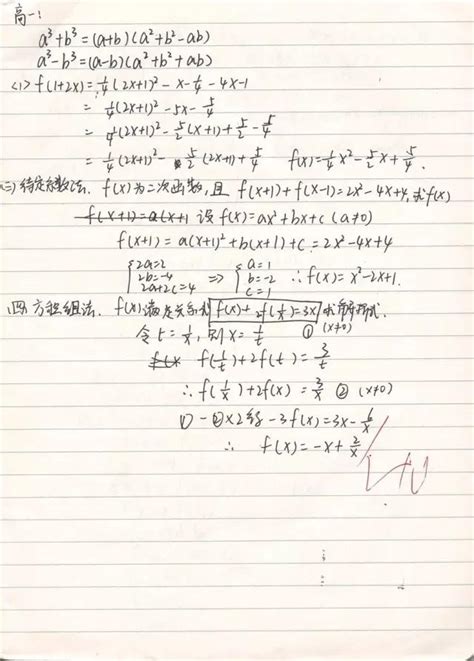 高一:
a³+b³=(a+b)(a²+b²-ab)
a³-b³=(a-b)(a²+b²+ab)
<1> f(1+2x)=¼(2x+1)²-x-¼-4x-1
= ¼(2x+1)²-5x-5/4
= ¼(2x+1)²-5/2(x+1)+5/2-5/4
= ¼(2x+1)²-5/2(2x+1)+5/4 f(x)=¼x²-5/2x+5/4.
(三) 待定系数法. f(x)为二次函数, 且 f(x+1)+f(x-1)=2x²-4x+4, 求f(x)
f(x+1)=a(x+1 设f(x)=ax²+bx+c (a≠0)
f(x+1)=a(x+1)²+b(x+1)+c=2x²-4x+4
{2a=2 2b=-4 2a+2c=4 ⇒ {a=1 b=-2 c=1 ∴f(x)=x²-2x+1.
四. 方程组法. f(x)满足关系式 f(x)+2f(1/x)=3x 求解析式.
令t=1/x, 则x=1/t ① (x≠0)
f(x f(1/t)+2f(t)=3/t
∴f(1/x)+2f(x)=3/x ② (x≠0)
①-②×2得-3f(x)=3x-6/x
∴ f(x)=-x+2/x